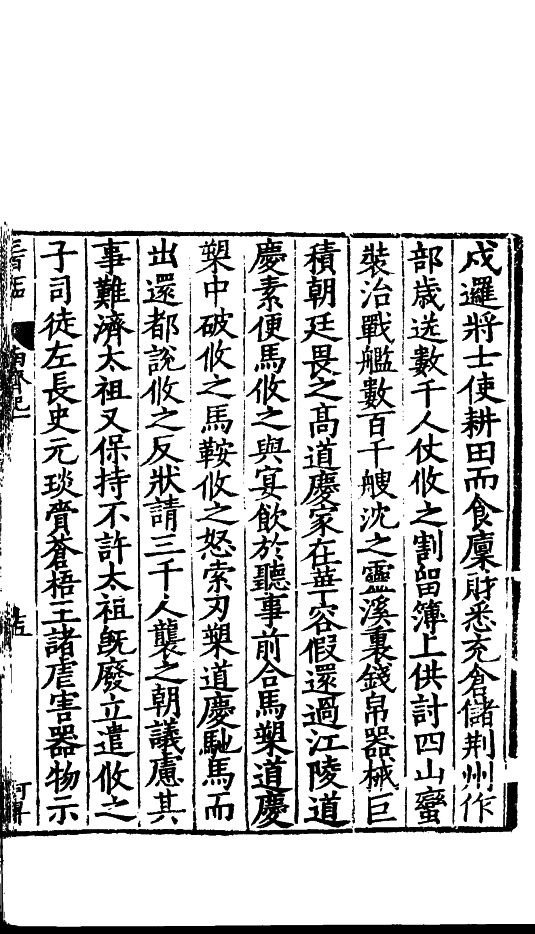 戍邏將士使耕田而食廩財悉充倉儲荆州作
部歳送數千人仗攸之割留簿上供討四山蠻
裝治戰艦數百千艘沈之靈溪裏錢帛器械巨
積朝廷畏之高道慶家在華容假還過江陵道
慶素便馬攸之與宴飲於聽事前合馬槊道慶
槊中破攸之馬鞍攸之怒索刃槊道慶馳馬而
出還都說攸之反狀請三千人襲之朝議慮其
事難濟太祖又保持不許太祖旣廢立遣攸之
子司徒左長史元琰齎蒼梧王諸虐害器物示